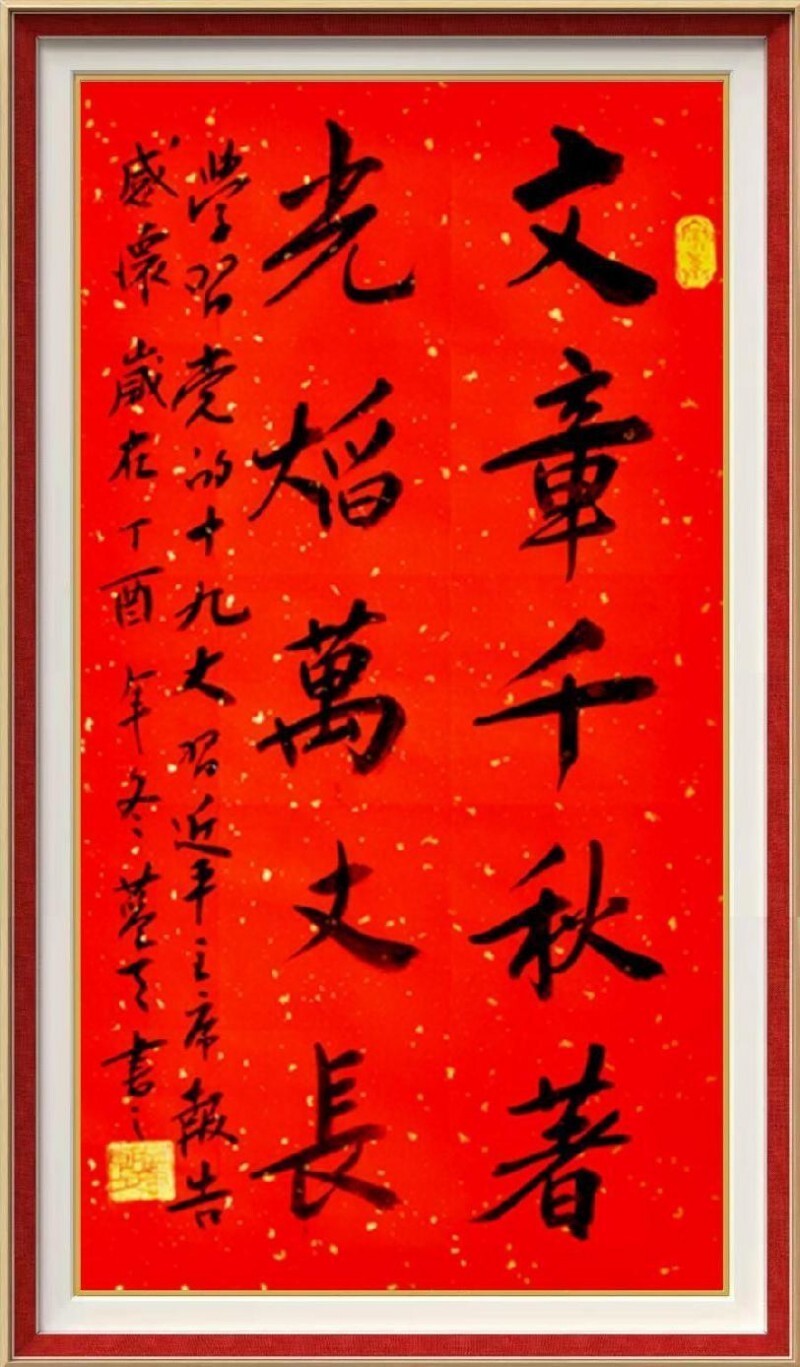 文章千秋著
光焰萬丈長
學習党的十九大習近平主席報告
感懷歲在丁酉年冬書之